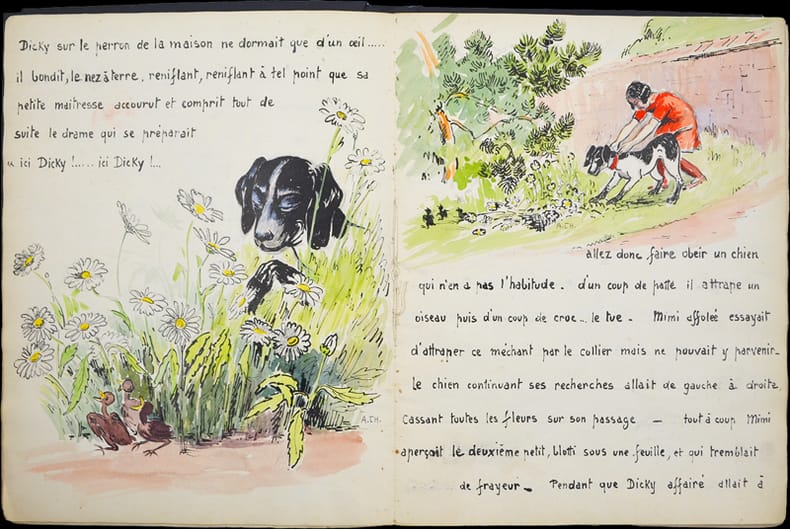 Dicky sur le perron de la maison ne dormait que d'un œil.....
il bondit, le nez à terre, reniflant, reniflant à tel point que sa
petite maitresse accourut et comprit tout de
suite le drame qui se préparait
" ici Dicky !..... ici Dicky !...
A.CH.
A.CH.
allez donc faire obeir un chien
qui n'en a pas l'habitude. d'un coup de patte il attrape un
oiseau puis d'un coup de croc... le tue - Mimi affolée essayait
d'attraper ce méchant par le collier mais ne pouvait y parvenir -
le chien continuant ses recherches allait de gauche à droite,
cassant toutes les fleurs sur son passage - tout à coup Mimi
aperçoit le deuxième petit, blotti sous une feuille, et qui tremblait
de frayeur - Pendant que Dicky affairé allait à